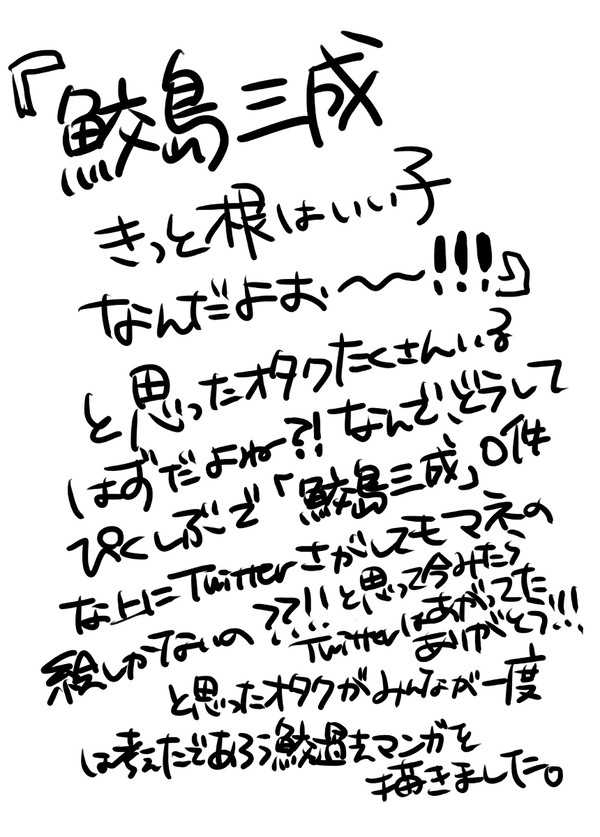 『鮫島三成
きっと根はいい子
なんだよぉ〜!!!』
と思ったオタクたくさんいる
はずだよね?!なんで、どうして
ぴくしぶで「鮫島三成」0件
な上にTwitterさがしてもマネの
絵しかでないの??!!と思って今みたら
Twitterはあがってた
ありがとう!!!
と思ったオタクがみんなが一度
は考えたであろう鮫過去マンガを
描きました。